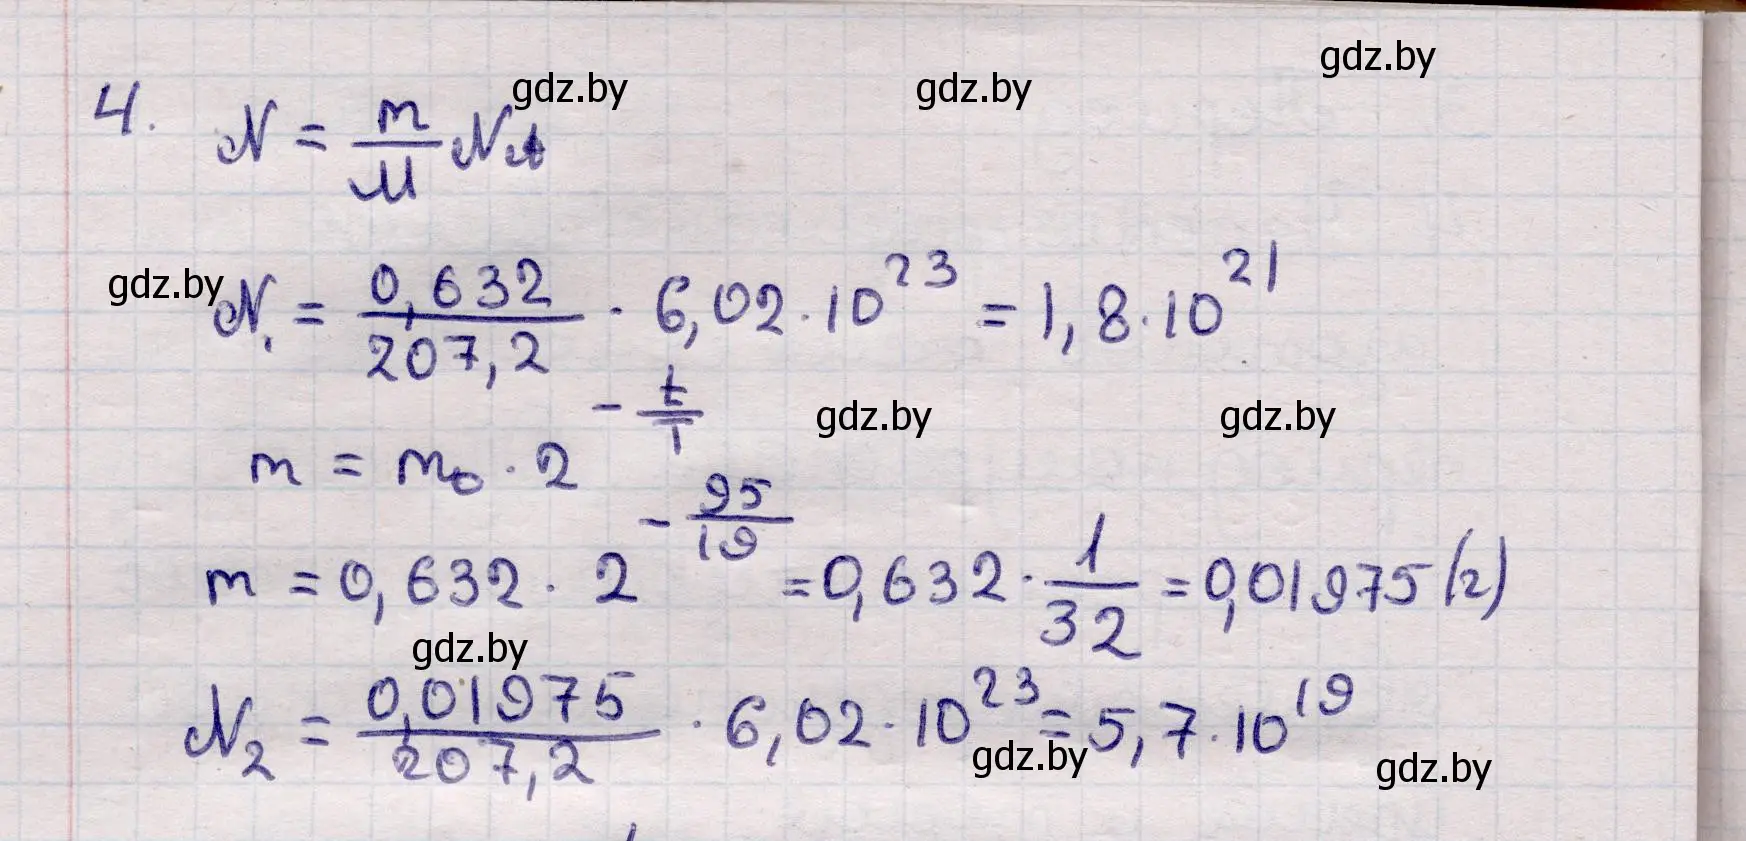 gdz.by
4. N = m/M N_A gdz.by gdz.by
gdz.by N₁ = 0,632/207,2 · 6,02 · 10²³ = 1,8 · 10²¹
m = m₀ · 2^(-t/T) gdz.by gdz.by
m = 0,632 · 2^(-95/19) = 0,632 · 1/32 = 0,01975 (г)
gdz.by
N₂ = 0,01975/207,2 · 6,02 · 10²³ = 5,7 · 10¹⁹
gdz.by gdz.by